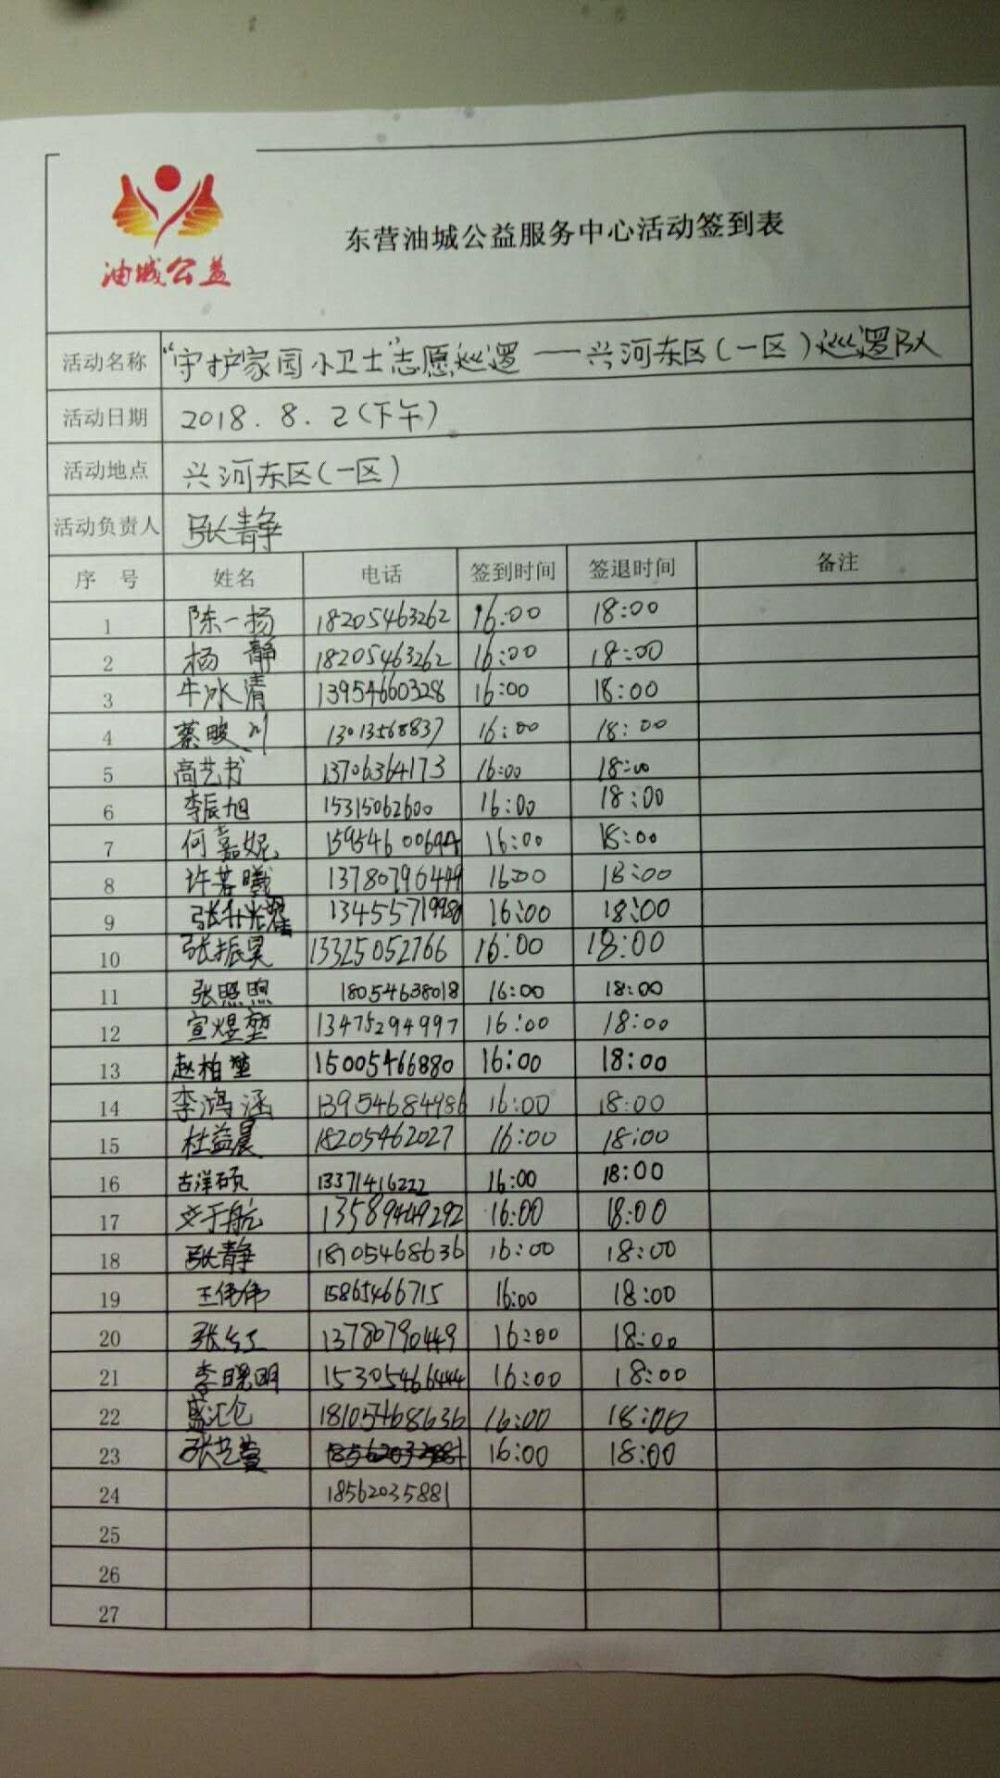 油城公益
东营油城公益服务中心活动签到表
活动名称 “守护家园小卫士”志愿巡逻——兴河东区(一区)巡逻队
活动日期 2018.8.2(下午)
活动地点 兴河东区(一区)
活动负责人 张静
序号 姓名 电话 签到时间 签退时间 备注
1 陈一扬 18205463262 16:00 18:00
2 杨静 18205463262 16:00 18:00
3 牛冰清 13954660328 16:00 18:00
4 蔡畯川 13013568837 16:00 18:00
5 高艺书 13706364173 16:00 18:00
6 李辰旭 15315062600 16:00 18:00
7 何嘉妮 16:00 18:00
8 许若曦 13780796449 16:00 18:00
9 16:00 18:00
10 张振昊 13325052766 16:00 18:00
11 张照煦 18054638018 16:00 18:00
12 宣煜堃 13475294997 16:00 18:00
13 赵柏堃 15005466880 16:00 18:00
14 李鸿涵 13954684986 16:00 18:00
15 杜益晨 18205462027 16:00 18:00
16 古洋硕 13371416222 16:00 18:00
17 于航 13589449292 16:00 18:00
18 张静 18105468636 16:00 18:00
19 王伟伟 15865466715 16:00 18:00
20 张红 13780790449 16:00 18:00
21 李晓明 15305466444 16:00 18:00
22 盛汇仑 18105468636 16:00 18:00
23 张艺萱 16:00 18:00
24 18562035881
25
26
27